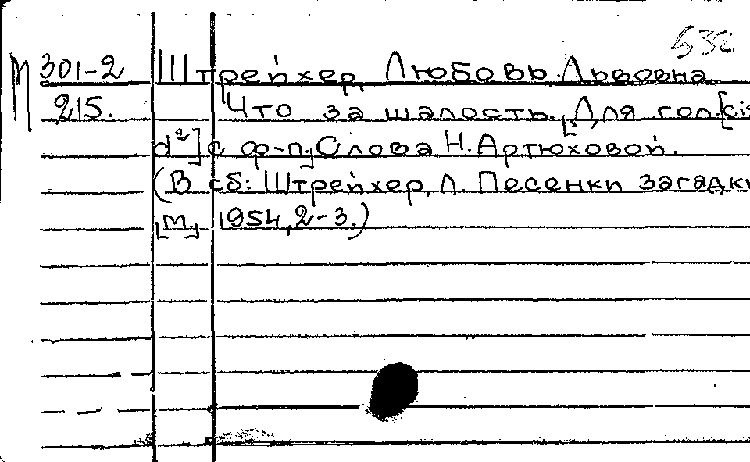 532
М 301-2 Штрейхер, Любовь Львовна.
215. Что за шалость. [Для гол. [c¹-
d²] с ф-п.] Слова Н. Артюховой.
(В сб: Штрейхер, Л. Песенки загадки
[М.] 1954, 2-3.)